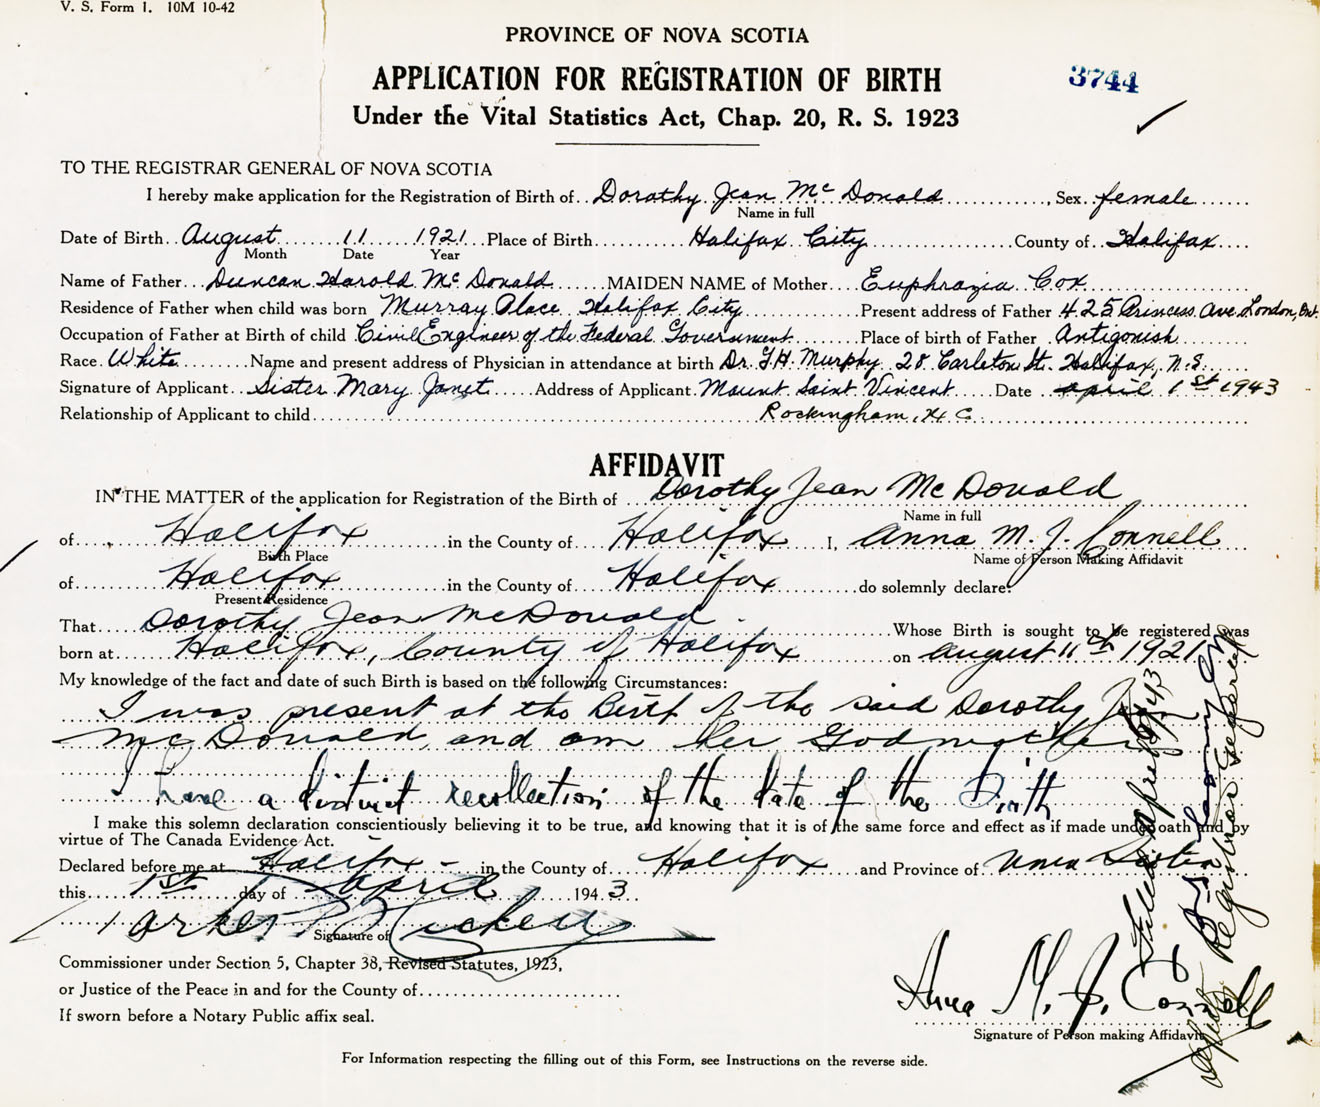 V. S. Form 1. 10M 10-42
PROVINCE OF NOVA SCOTIA
APPLICATION FOR REGISTRATION OF BIRTH
3744
Under the Vital Statistics Act, Chap. 20, R. S. 1923
TO THE REGISTRAR GENERAL OF NOVA SCOTIA
I hereby make application for the Registration of Birth of Dorothy Jean McDonald, Sex female
Name in full
Date of Birth August 11 1921 Place of Birth Halifax City County of Halifax
Month Date Year
Name of Father Duncan Harold McDonald MAIDEN NAME of Mother Euphrazia Cox
Residence of Father when child was born Murray Place Halifax City Present address of Father 425 Princess Ave. London, Ont.
Occupation of Father at Birth of child Civil Engineer of the Federal Government Place of birth of Father Antigonish
Race White Name and present address of Physician in attendance at birth Dr. G.H. Murphy 28 Carleton St. Halifax, N.S.
Signature of Applicant Sister Mary Janet Address of Applicant Mount Saint Vincent Date April 1st 1943
Relationship of Applicant to child Rockingham, Hx. C.
AFFIDAVIT
IN THE MATTER of the application for Registration of the Birth of Dorothy Jean McDonald
Name in full
of Halifax in the County of Halifax I, Anna M. J. Connell
Birth Place Name of Person Making Affidavit
of Halifax in the County of Halifax do solemnly declare:
Present Residence
That Dorothy Jean McDonald Whose Birth is sought to be registered was
born at Halifax, County of Halifax on August 11th 1921
My knowledge of the fact and date of such Birth is based on the following Circumstances:
I was present at the Birth of the said Dorothy J
McDonald, and am her Godmother
I have a distinct recollection of the date of the Birth
I make this solemn declaration conscientiously believing it to be true, and knowing that it is of the same force and effect as if made under oath and by
virtue of The Canada Evidence Act.
Declared before me at Halifax in the County of Halifax and Province of Nova Scotia
this 1st day of April 1943.
Signature of
Commissioner under Section 5, Chapter 38, Revised Statutes, 1923,
or Justice of the Peace in and for the County of
If sworn before a Notary Public affix seal.
Anna M. J. Connell
Signature of Person making Affidavit
For Information respecting the filling out of this Form, see Instructions on the reverse side.
Filed April
Deputy Registrar General